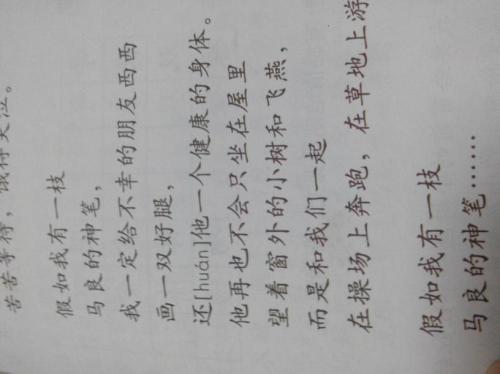 苦苦等待，饿得哭泣。
假如我有一枝
马良的神笔，
我一定给不幸的朋友西西
画一双好腿，
还[huán]他一个健康的身体。
他再也不会只坐在屋里
望着窗外的小树和飞燕，
而是和我们一起
在操场上奔跑，在草地上游
假如我有一枝
马良的神笔……